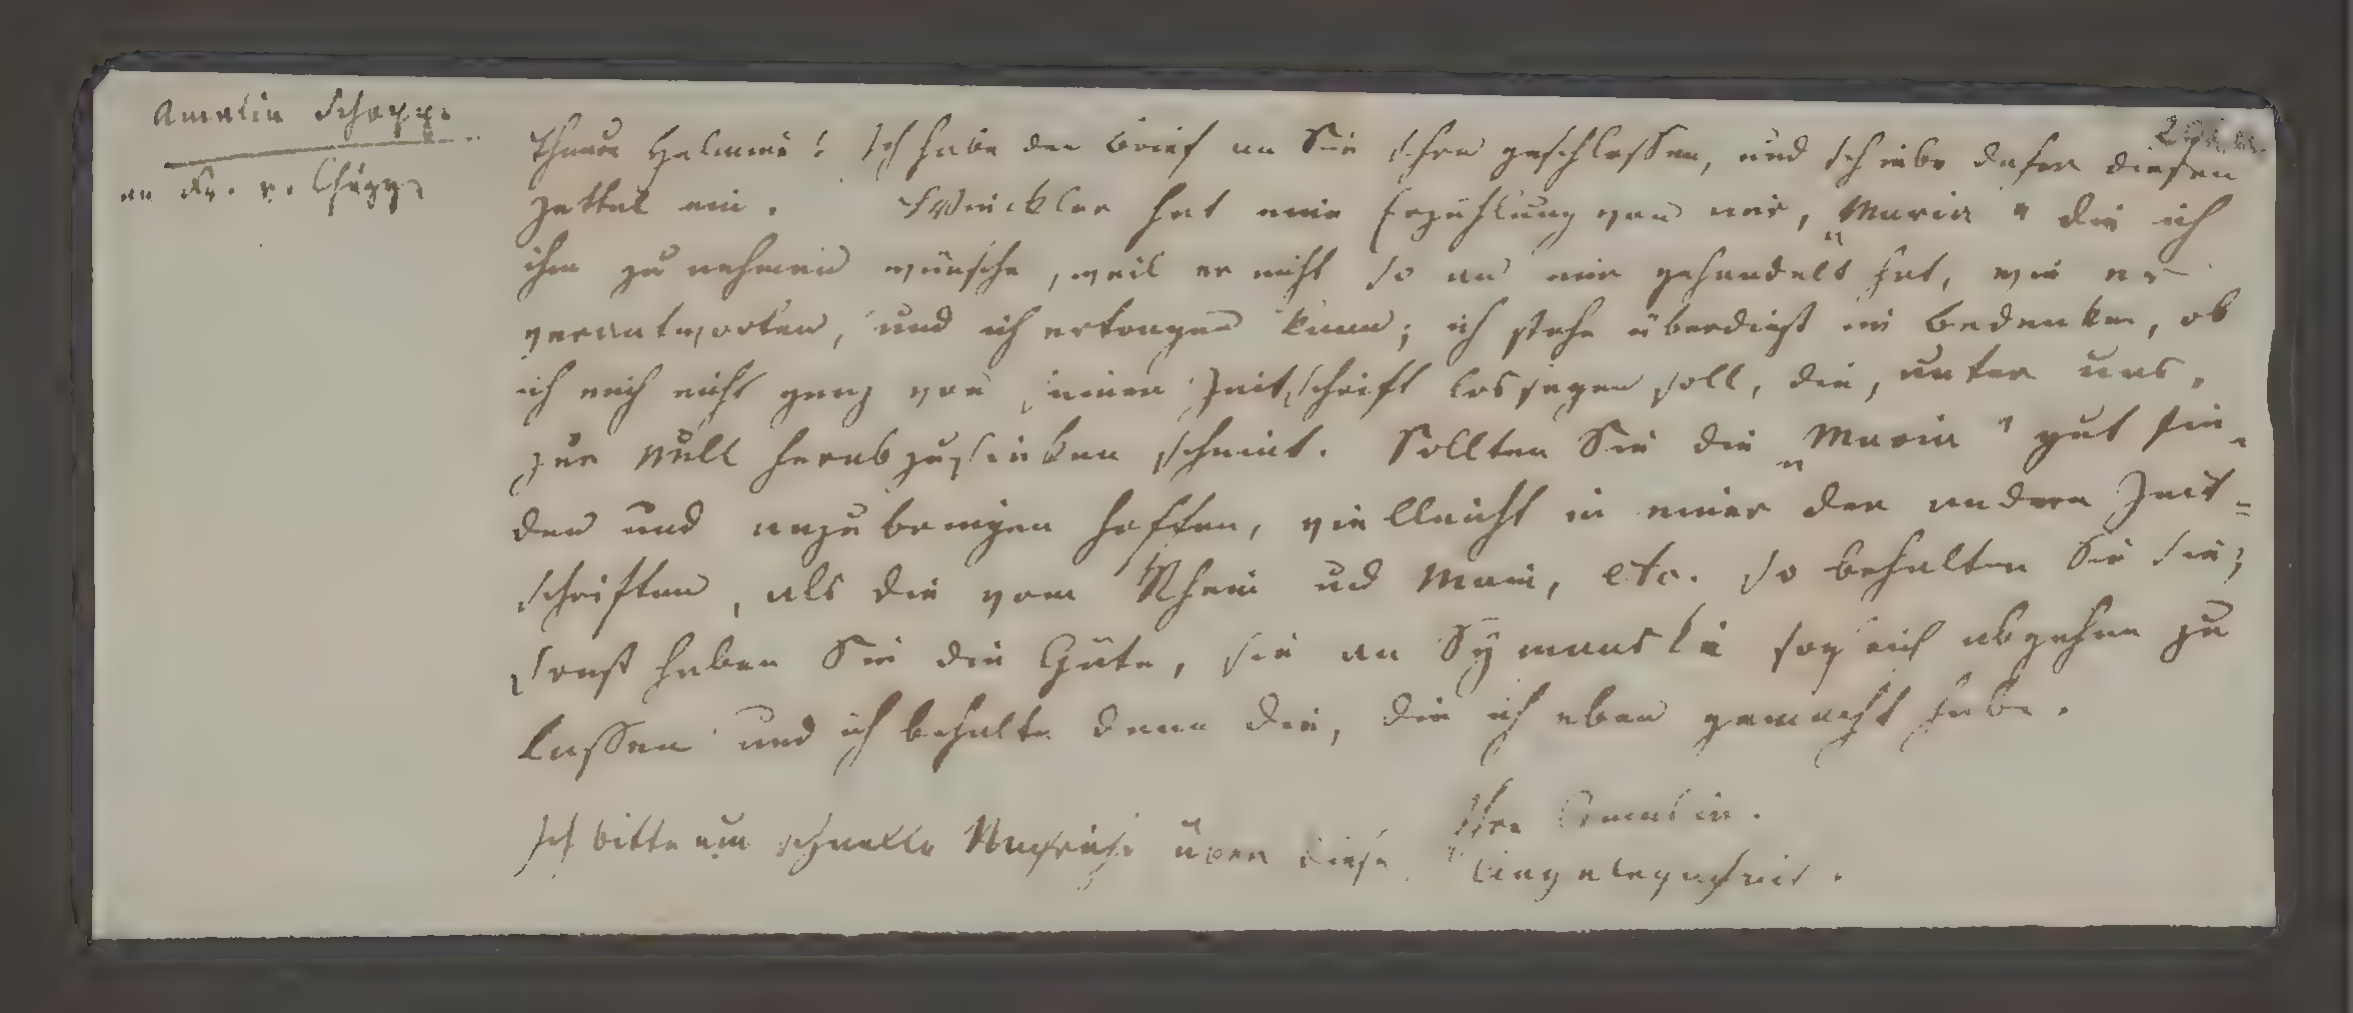 Amalia Schopp.
an Fr. v. Chezy
Theure Helmine! Ich habe den Brief an Sie schon geschlossen, und schiebe daher diesen
Zettel ein. Winckler hat eine Erzählung von mir, „Maria“ die ich
ihm zu nehmen wünsche, weil er nicht so an mir gehandelt hat, wie er
verantworten, und ich ertragen kann; ich stehe überdieß im Bedenken, ob
ich mich nicht ganz von seiner Zeitschrift lossagen soll, die, unter uns,
zur Null herabzusinken scheint. Sollten Sie die „Maria“ gut fin-
den und anzubringen hoffen, vielleicht in einer der andern Zeit=
schriften, als die vom Rhein und Main, etc. so behalten Sie sie;
sonst haben Sie die Güte, sie an Symanski sogleich abgehen zu
lassen und ich behalte dann die, die ich eben gemacht habe.
Ihre Amalia.
Ich bitte um schnelle Nachricht über diese Angelegenheit.